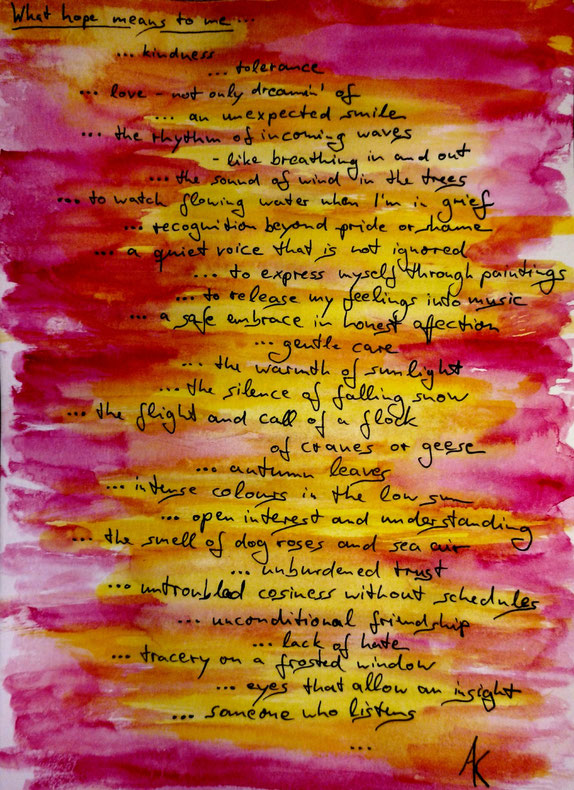 What hope means to me...
... kindness
... tolerance
... love - not only dreamin' of
... an unexpected smile
... the rhythm of incoming waves
- like breathing in and out
... the sound of wind in the trees
... to watch flowing water when I'm in grief
... recognition beyond pride or shame
... a quiet voice that is not ignored
... to express myself through paintings
... to release my feelings into music
... a safe embrace in honest affection
... gentle care
... the warmth of sunlight
... the silence of falling snow
... the flight and call of a flock
of cranes or geese
... autumn leaves
... intense colours in the low sun
... open interest and understanding
... the smell of dog roses and sea air
... unburdened trust
... untroubled cosiness without schedules
... unconditional friendship
... lack of hate
... tracery on a frosted window
... eyes that allow an insight
... someone who listens
...
AK